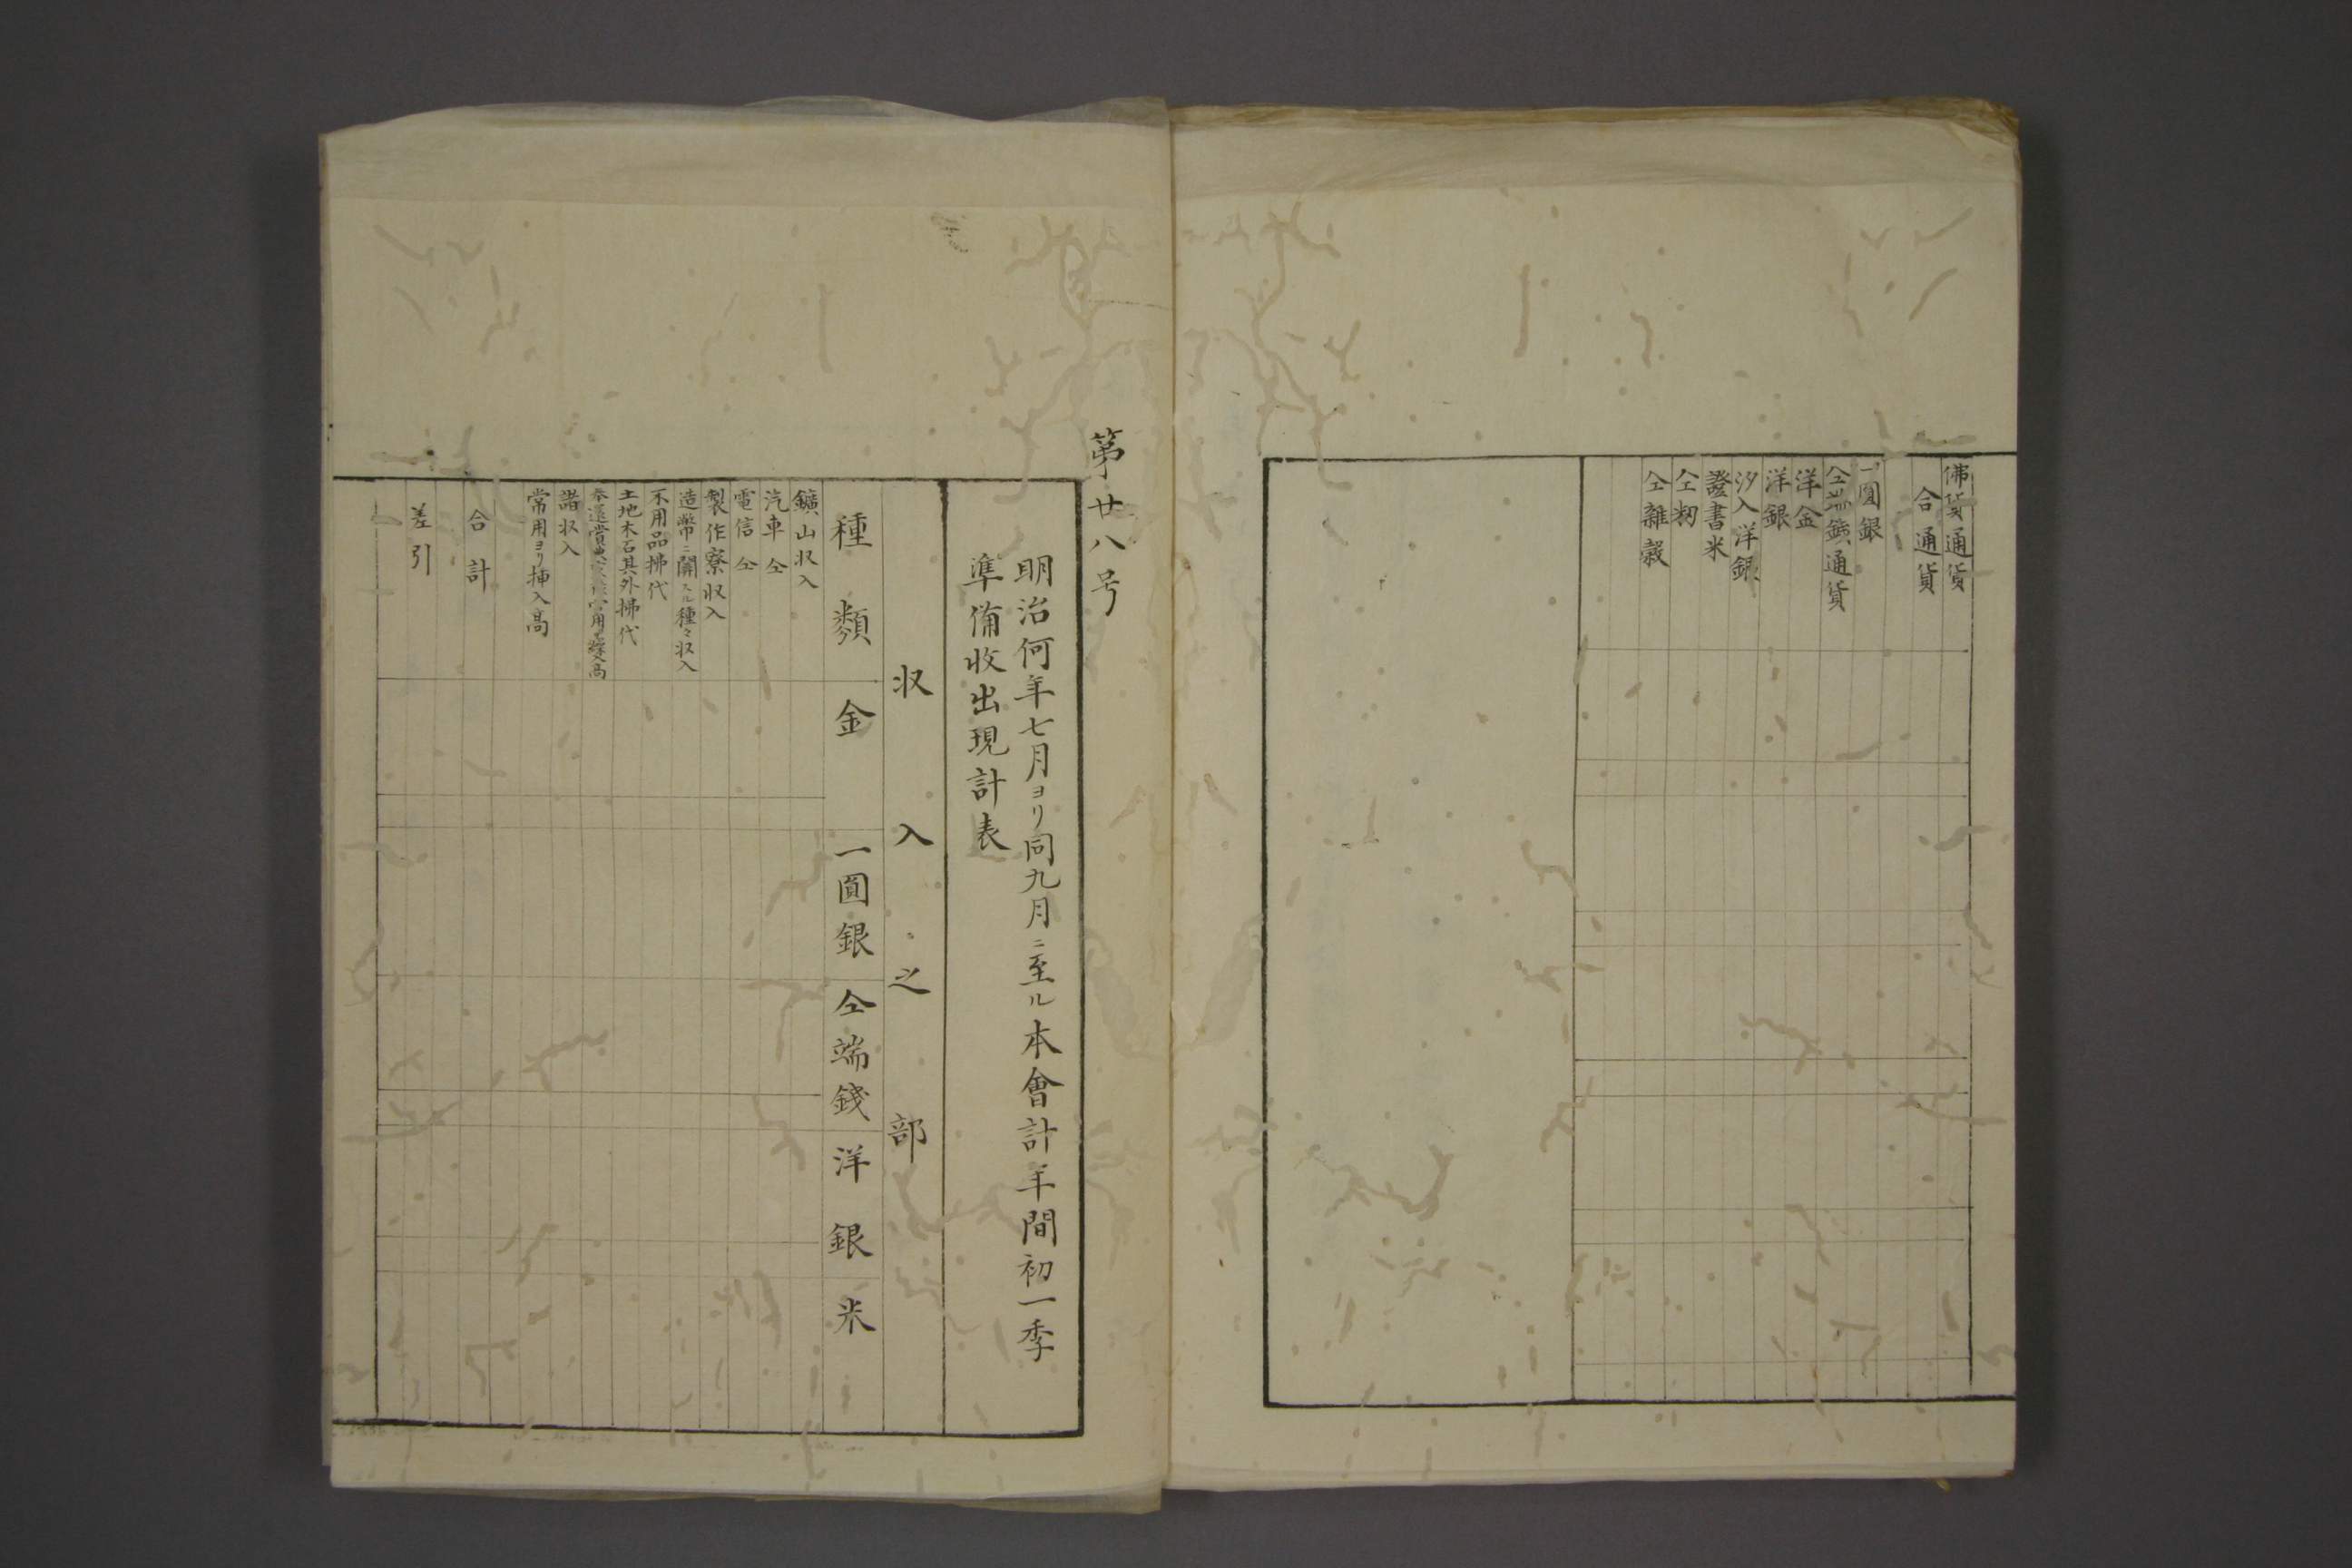 佛貨通貨
合通貨
一圓銀
仝端錢通貨
洋金
洋銀
汐入洋銀
證書米
仝籾
仝雜穀
第廿八号
明治何年七月ヨリ同九月ニ至ル本會計年間初一季
準備收出現計表
収入之部
種類 金 一圓銀 仝端錢 洋銀 米
鑛山収入
汽車仝
電信仝
製作寮収入
造幣ニ關スル種々収入
不用品拂代
土地木石其外拂代
諸収入
常用ヨリ挿入高
合計
差引